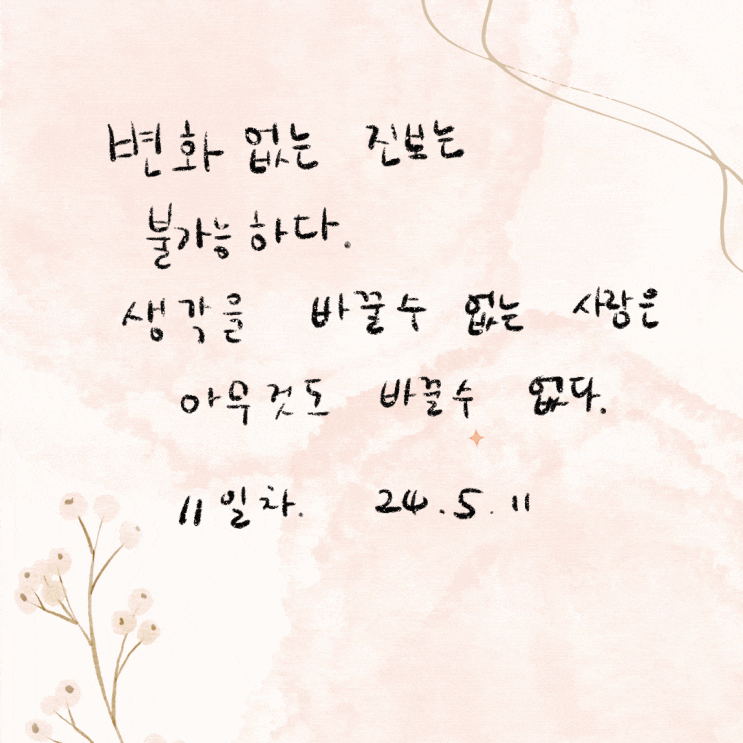 변화 없는 진보는
불가능하다.
생각을 바꿀수 없는 사람은
아무것도 바꿀수 없다.
11일차. 24.5.11